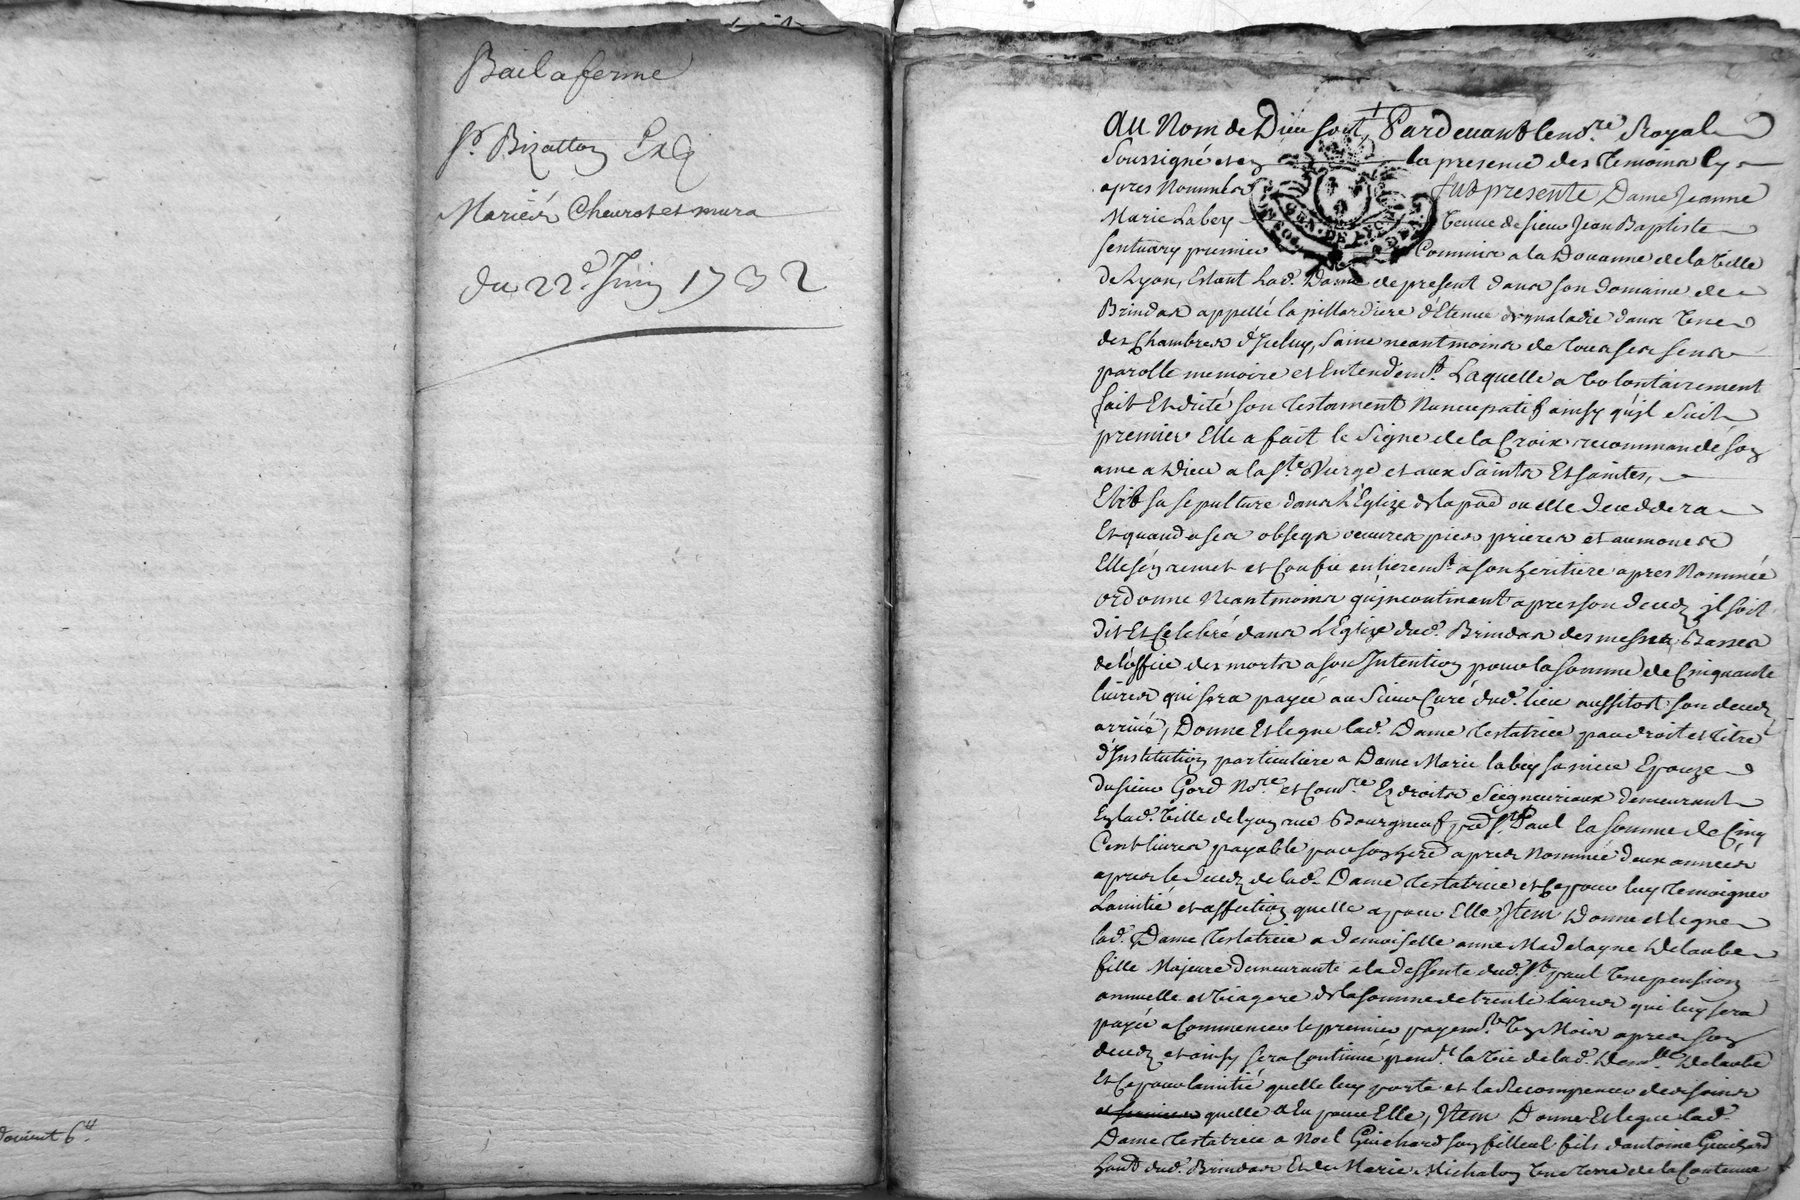 Bail a ferme
Sr. Bizotton Exg
Mariés Chevrot et mura
du 22e. Juin 1732
donnent 6tt
Au Nom de Dieu soit, Pardevant le nore. Royal
Soussigné et en la presence des temoins cy
apres Nommés fut presente Dame Jeanne
Marie Labey veuve de sieur Jean Baptiste
Sentuary premier Commis a la Douanne de la ville
de Lyon, Estant lad. Dame de present dans son domaine de
Brindas appellé la pillardiere détenue de maladie dans une
des Chambres d'Iceluy, saine neantmoins de tous ses sens
parolle memoire et Entendemt. Laquelle a volontairement
fait Et dicté son testament Nuncupatif ainsy qu'jl suit
premier Elle a fait le signe de la Croix recommandé son
ame a Dieu a la Ste. Vierge et aux Saints Et saintes,
Elit sa sepulture dans L'Eglize de la parr. ou elle deceddera
Et quand a ses obseqs oeuvres pies prieres et aumones
Elle s'en remet et confie entieremt. a son heritiere apres Nommée
ordonne Neantmoins qu'jncontinent apres son deced jl soit
dit Et Celebré dans L'Eglize dud. Brindas des messes Basses
de l'office des morts a son Intention pour la somme de Cinquante
livres qui sera payée au Sieur Curé dud. lieu aussitost son deced
arrivé, Donne Et legue lad. Dame testatrice par droit et titre
d'Institution particuliere a Dame Marie labey sa niece Epouze
du sieur Gord Nore. et Comre. En droits Seigneuriaux demeurant
En lad. Ville de lyon rue Bourgneuf parr. St. Paul la somme de Cinq
Cent livres payable par son herd. apres Nommée deux années
apres le deced de lad. Dame testatrice et Ce pour luy temoigner
Lamitié et affection quelle a pour Elle, Item Donne et legue
lad. Dame testatrice a demoiselle anne Madelayne Delaube
fille Majeure demeurante a la dessente dud. St. paul Une pension
annuelle et viagere de la somme de trente livres qui luy sera
payée a Commencer le premier payemt. six Mois apres son
deced et ainsy sera Continué pendt. la vie de lad. Demlle. Delaube
Et Ce pour lamitié quelle luy porte et la Recompencer des soins
et services quelle a Eu pour Elle, Item Donne Et legue lad.
Dame testatrice a Noel Guichard son filleul fils d'antoine Guichard
hant. dud. Brindas Et de Marie Michalon Une terre de la Contenue